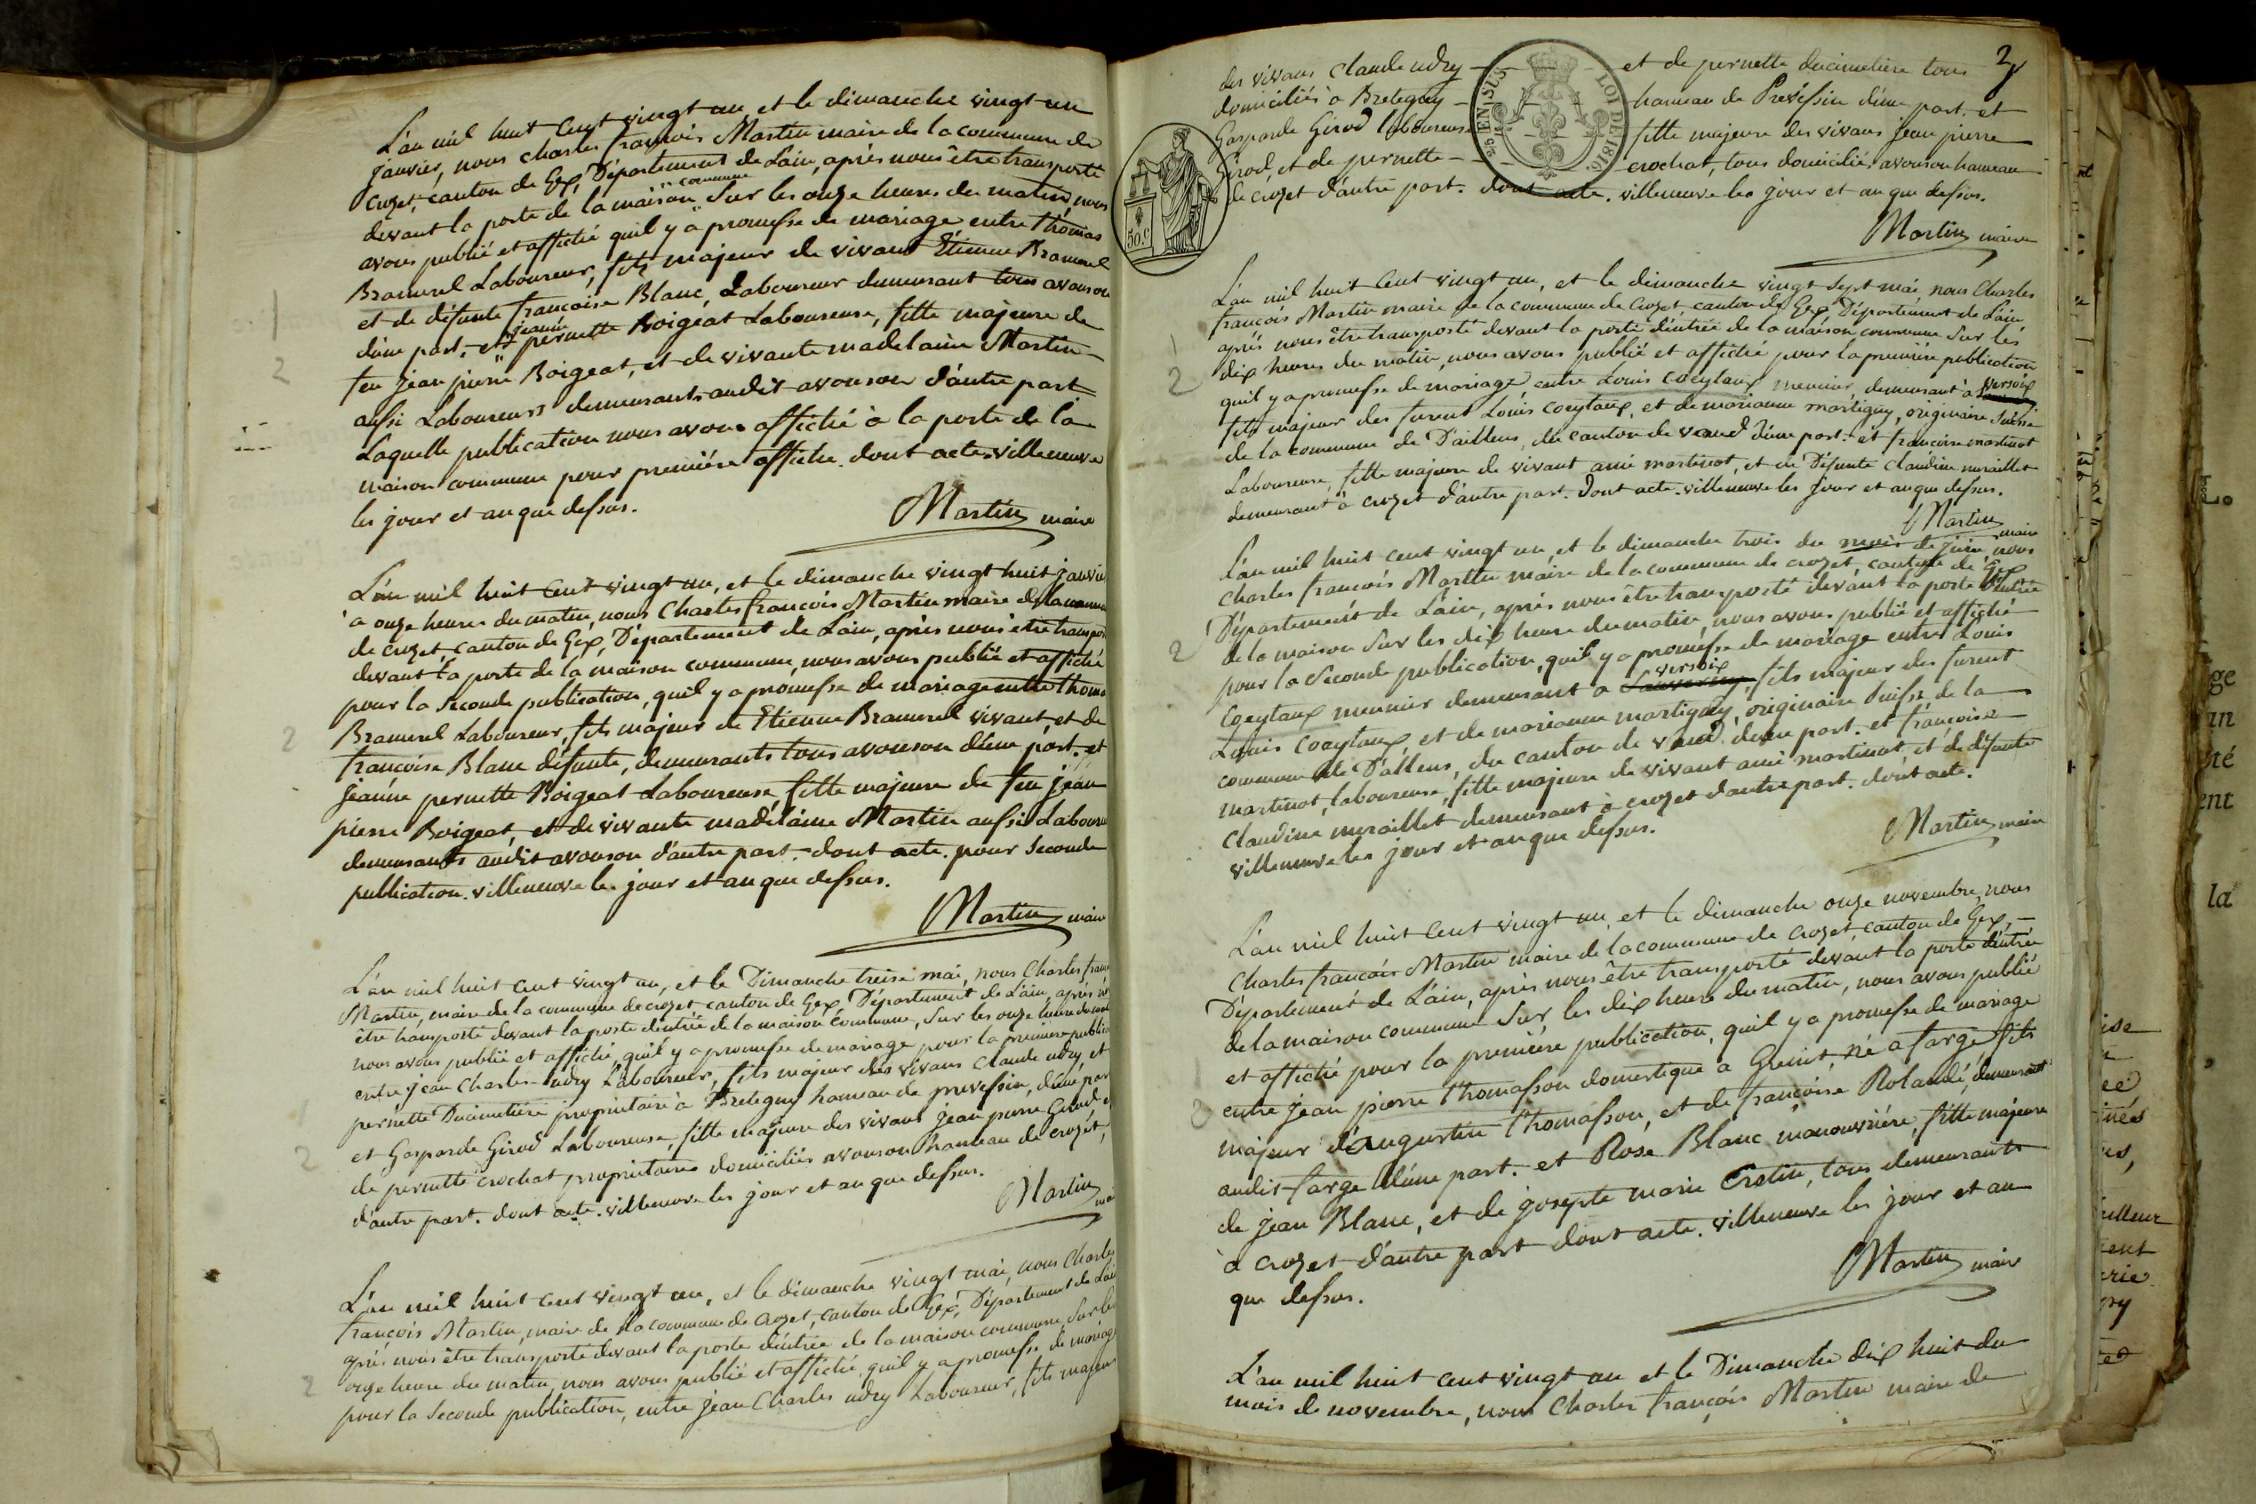 L'an mil huit Cent vingt un, et le dimanche vingt un
janvier, nous charles françois Martin maire de la commune de
Crozet, canton de Gex, Département de L'ain, après nous être transporté
commune
devant la porte de la maison Sur les onze heures du matin, nous
avons publié et affiché quil y a promesse de mariage entre thomas
Bramerel Laboureur, fils majeur de vivant Étienne Bramerel
et de défunte françoise Blanc, Laboureur demeurant tous avouson
jeanne
d'une part, et pernette Boigeat Laboureuse, fille majeure de
feu jean pierre Boigeat, et de vivante madelaine Martin
aussi Laboureurs demeurants audit avouson d'autre part
Laquelle publication nous avons affiché à la porte de la
maison commune pour première affiche. dont acte. villeneuve
les jour et an que dessus.
Martin maire
L'an mil huit Cent vingt un, et le dimanche vingt huit janvier
à onze heures du matin, nous Charles françois Martin maire de la commune
de crozet, canton de Gex, Département de L'ain, après nous être transporté
devant la porte de la maison commune, nous avons publié et affiché
pour la Seconde publication, quil y a promesse de mariage entre thomas
Bramerel Laboureur, fils majeur de Etienne Bramerel vivant et de
françoise Blanc défunte, demeurants tous avouson d'une part, et
jeanne pernette Boigeat Laboureuse fille majeure de feu jean
pierre Boigeat, et de vivante madelaine Martin aussi Laboure
demeurants audit avouson d'autre part. dont acte. pour Seconde
publication. villeneuve les jour et an que dessus.
Martin maire
L'an mil huit Cent vingt un, et le Dimanche treise mai, nous Charles fran
Martin, maire de la commune de crozet canton de Gex Département de L'ain, après
être transporté devant la porte d'entrée de la maison commune, Sur les onze heures du
nous avons publié et affiché, quil y a promesse de mariage pour la première public
entre jean Charles udry Laboureur, fils majeur des vivans Claude udry et
pernette Ducimetière propriétaire à Bretegny hameau de prevessin, d'une par
et Gasparde Girod Laboureuse, fille majeure des vivans jean pierre Girod e
de pernette crochat propriétaires domiciliés avouson hameau de crozet,
d'autre part. dont acte. villeneuve les jour et an que dessus.
Martin
L'an mil huit cent vingt un, et le dimanche vingt mai, nous Charles
françois Martin, maire de la commune de crozet, canton de Gex, Département de L'ain
après nous être transporté devant la porte d'entrée de la maison commune, Sur les
onze heure du matin, nous avons publié et affiché, quil y a promesse de mariage
pour la Seconde publication, entre jean Charles udry Laboureur, fils majeur
2
des vivans Claude udry et de pernette ducimetière tous
domiciliés à Bretegny hameau de Prevessin d'une part. et
Gasparde Girod laboureuse fille majeure des vivans jean pierre
Girod, et de pernette crochat, tous domiciliés avouson hameau
de crozet d'autre part. dont acte. villeneuve les jour et an que dessus.
LOI DE 1816.
50.c
Martin maire
L'an mil huit Cent vingt un, et le dimanche vingt Sept mai, nous Charles
françois Martin maire de la commune de Crozet, canton de Gex, Département de L'ain,
après nous être transporté devant la porte d'entrée de la maison commune Sur les
dix heures du matin, nous avons publié et affiché pour la première publication
quil y a promesse de mariage entre Louis Coeytaux meunier, demeurant à versoix
fils majeur des furent Louis Coeytaux, et de marianne martigny, originaire Suisse
de la commune de Daillens, du canton de vaud d'une part. et françoise martinot
Laboureuse, fille majeure de vivant amé martinot, et de Défunte Claudine meraillet
demeurant à crozet d'autre part. dont acte. villeneuve les jour et an que dessus.
Martin maire
L'an mil huit cent vingt un, et le dimanche trois du mois de juin, nous
Charles françois Martin maire de la commune de crozet, canton de Gex
Département de L'ain, après nous être transporté devant la porte d'entrée
de la maison Sur les dix heure du matin, nous avons publié et affiché
pour la Seconde publication, quil y a promesse de mariage entre Louis
versoix
Coeytaux meunier demeurant à fils majeur des furent
Louis Coeytaux, et de marianne martigny, originaire Suisse de la
commune de Dallens, du canton de vaud d'une part. et françoise
martinot, laboureuse, fille majeure de vivant amé martinot, et de défunte
Claudine meraillet demeurant à crozet d'autre part. dont acte.
villeneuve les jour et an que dessus.
Martin maire
L'an mil huit Cent vingt un, et le dimanche onze novembre, nous
Charles françois Martin maire de la commune de crozet, canton de Gex,
Département de L'ain, après nous être transporté devant la porte d'entrée
de la maison commune Sur les dix heure du matin, nous avons publié
et affiché pour la première publication, quil y a promesse de mariage
entre jean pierre thomasson domestique a Greiut, né a farge fils
majeur d'augustin thomasson, et de françoise Rolandé, demeurant
audit farge d'une part. et Rose Blanc manouvrière, fille majeure
de jean Blanc, et de josepte marie Cretin, tous demeurants
à crozet d'autre part dont acte. villeneuve les jour et an
que dessus.
Martin maire
L'an mil huit cent vingt un et le Dimanche dix huit du
mois de novembre, nous Charles françois Martin maire de